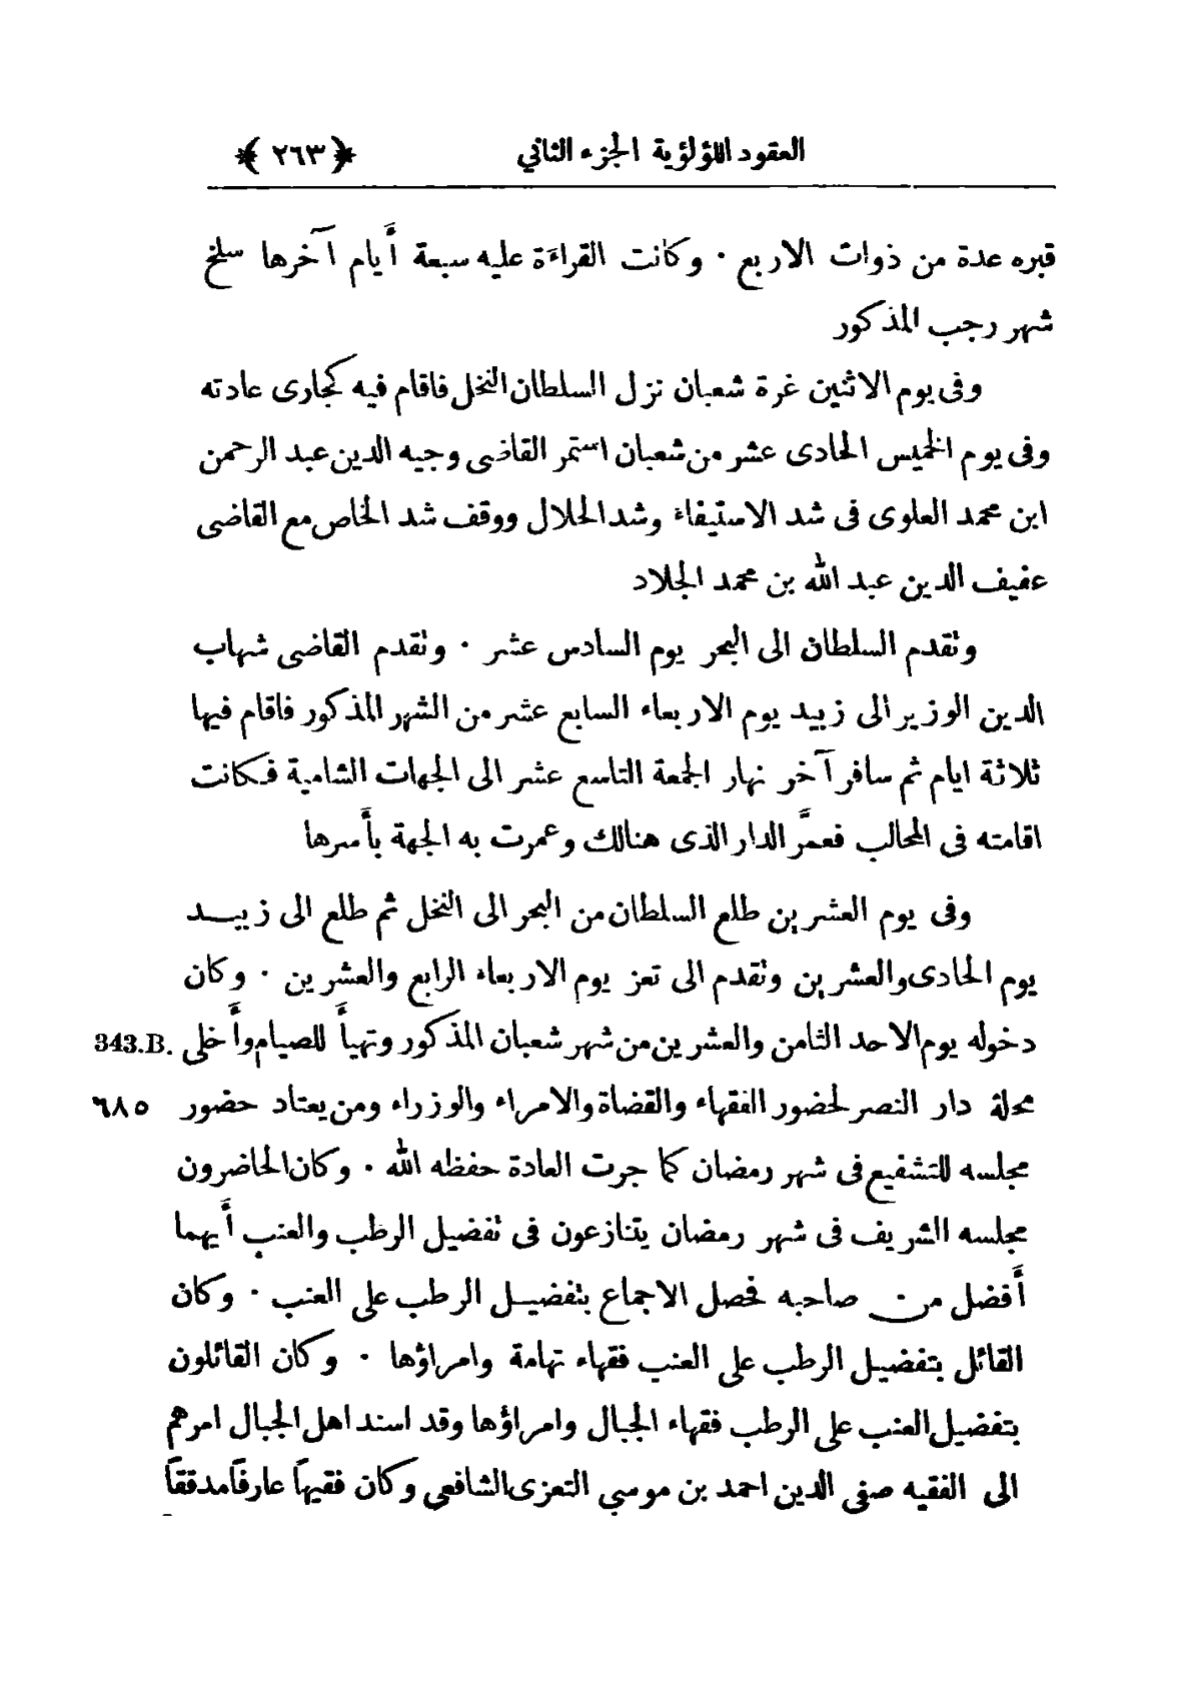 العقود اللؤلؤية الجزء الثاني ﴿ ٢٦٣ ﴾
قبره عدة من ذوات الاربع ٠ وكانت القراءَة عليه سبعة أَيام آخرها سلخ
شهر رجب المذكور
وفى يوم الاثنين غرة شعبان نزل السلطان النخل فاقام فيه كجارى عادته
وفى يوم الخميس الحادى عشر من شعبان استمر القاضى وجيه الدين عبد الرحمن
ابن محمد العلوى فى شد الاستيفاء وشد الحلال ووقف شد الخاص مع القاضى
عفيف الدين عبد الله بن محمد الجلاد
وتقدم السلطان الى البحر يوم السادس عشر ٠ وتقدم القاضى شهاب
الدين الوزير الى زبيد يوم الاربعاء السابع عشر من الشهر المذكور فاقام فيها
ثلاثة ايام ثم سافر آخر نهار الجمعة التاسع عشر الى الجهات الشامية فكانت
اقامته فى المحالب فعمَّر الدار الذى هنالك وعمرت به الجهة بأَسرها
وفى يوم العشرين طلع السلطان من البحر الى النخل ثم طلع الى زبيد
يوم الحادى والعشرين وتقدم الى تعز يوم الاربعاء الرابع والعشرين ٠ وكان
دخوله يوم الاحد الثامن والعشرين من شهر شعبان المذكور وتهيأَ للصيام وأَخلى 343.B.
محلة دار النصر لحضور الفقهاء والقضاة والامراء والوزراء ومن يعتاد حضور ٦٨٥
مجلسه للتشفيع فى شهر رمضان كما جرت العادة حفظه الله ٠ وكان الحاضرون
مجلسه الشريف فى شهر رمضان يتنازعون فى تفضيل الرطب والعنب أَيهما
أَفضل من صاحبه فحصل الاجماع بتفضيل الرطب على العنب ٠ وكان
القائل بتفضيل الرطب على العنب فقهاء تهامة وامراؤها ٠ وكان القائلون
بتفضيل العنب على الرطب فقهاء الجبال وامراؤها وقد اسند اهل الجبال امرهم
الى الفقيه صفى الدين احمد بن موسي التعزى الشافعي وكان فقيهاً عارفاً مدققاً